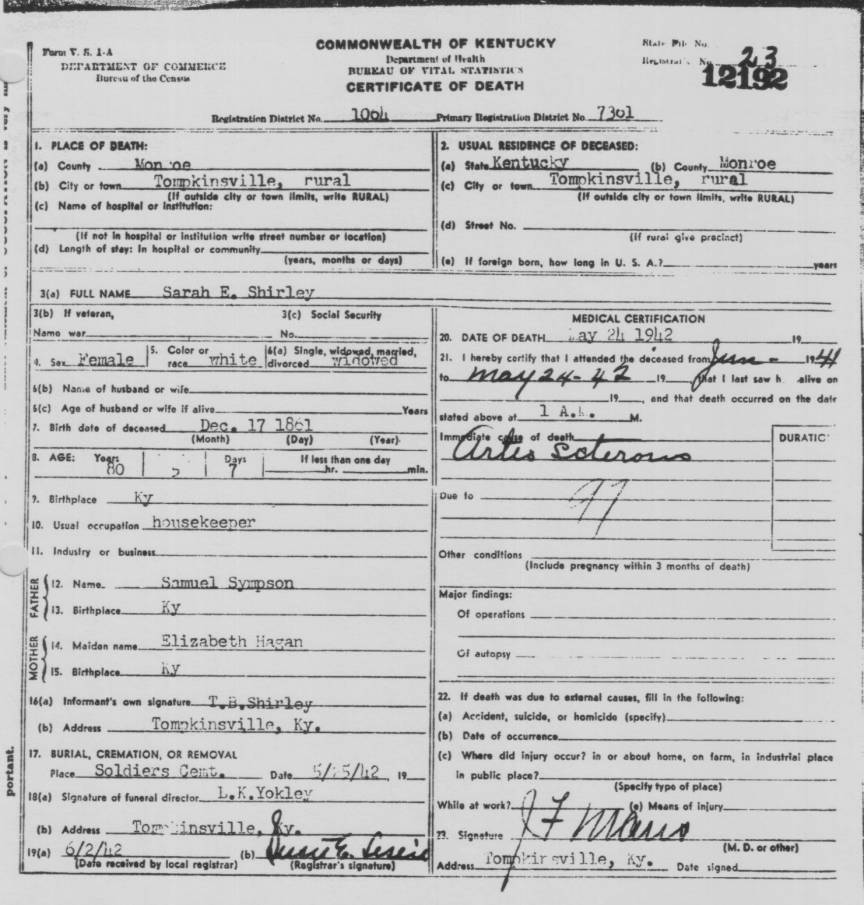 Form V. S. 1-A
DEPARTMENT OF COMMERCE
Bureau of the Census
COMMONWEALTH OF KENTUCKY
Department of Health
BUREAU OF VITAL STATISTICS
CERTIFICATE OF DEATH
State File No.
Registrar's No. 23
12192
Registration District No. 1004 Primary Registration District No. 7301
1. PLACE OF DEATH:
(a) County Monroe
(b) City or town Tompkinsville, rural
(If outside city or town limits, write RURAL)
(c) Name of hospital or institution:
(If not in hospital or institution write street number or location)
(d) Length of stay: In hospital or community
(years, months or days)
2. USUAL RESIDENCE OF DECEASED:
(a) State Kentucky (b) County Monroe
(c) City or town Tompkinsville, rural
(If outside city or town limits, write RURAL)
(d) Street No.
(If rural give precinct)
(e) If foreign born, how long in U. S. A.? years
3(a) FULL NAME Sarah E. Shirley
3(b) If veteran, 3(c) Social Security
Name war No.
4. Sex Female 5. Color or race white 6(a) Single, widowed, married, divorced widowed
6(b) Name of husband or wife
6(c) Age of husband or wife if alive Years
7. Birth date of deceased Dec. 17 1861
(Month) (Day) (Year)
8. AGE: Years Days If less than one day
80 5 7 hr. min.
9. Birthplace Ky
10. Usual occupation housekeeper
11. Industry or business
FATHER
12. Name Samuel Sympson
13. Birthplace Ky
MOTHER
14. Maiden name Elizabeth Hagan
15. Birthplace Ky
16(a) Informant's own signature T.B.Shirley
(b) Address Tompkinsville, Ky.
17. BURIAL, CREMATION, OR REMOVAL
Place Soldiers Cemt. Date 5/25/42 19
18(a) Signature of funeral director L.K.Yokley
(b) Address Tompkinsville, Ky.
19(a) 6/2/42 (b)
(Date received by local registrar) (Registrar's signature)
MEDICAL CERTIFICATION
20. DATE OF DEATH May 24 1942 19
21. I hereby certify that I attended the deceased from Jun - 1941
to May 24-42 19 that I last saw h alive on
19 , and that death occurred on the date
stated above at 1 A.M. M.
Immediate cause of death DURATIO
Arteo Scterous
Due to
97
Other conditions
(Include pregnancy within 3 months of death)
Major findings:
Of operations
Of autopsy
22. If death was due to external causes, fill in the following:
(a) Accident, suicide, or homicide (specify)
(b) Date of occurrence
(c) Where did injury occur? in or about home, on farm, in industrial place
in public place?
(Specify type of place)
While at work? (e) Means of injury
23. Signature J F Marrs
(M. D. or other)
Address Tompkinsville, Ky. Date signed
portant.